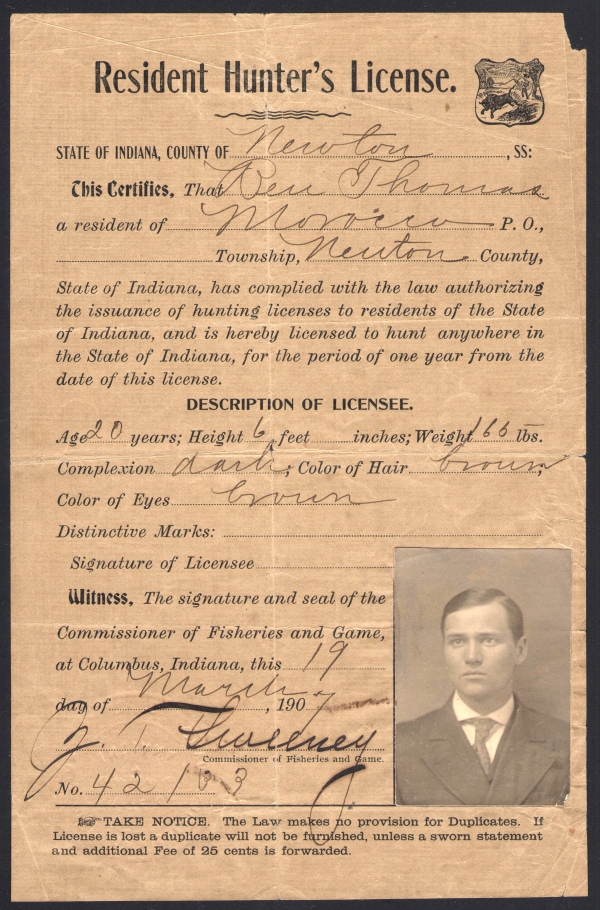 Resident Hunter's License.
STATE OF INDIANA, COUNTY OF Newton, SS:
This Certifies, That Ben Thomas
a resident of Morocco P. O.,
Township, Newton County,
State of Indiana, has complied with the law authorizing
the issuance of hunting licenses to residents of the State
of Indiana, and is hereby licensed to hunt anywhere in
the State of Indiana, for the period of one year from the
date of this license.
DESCRIPTION OF LICENSEE.
Age 20 years; Height 6 feet inches; Weight 165 lbs.
Complexion dark; Color of Hair brown;
Color of Eyes brown
Distinctive Marks:
Signature of Licensee
Witness, The signature and seal of the
Commissioner of Fisheries and Game,
at Columbus, Indiana, this 19
day of March, 1907
Z. T. Sweeney
Commissioner of Fisheries and Game.
No. 42133
☞ TAKE NOTICE. The Law makes no provision for Duplicates. If
License is lost a duplicate will not be furnished, unless a sworn statement
and additional Fee of 25 cents is forwarded.